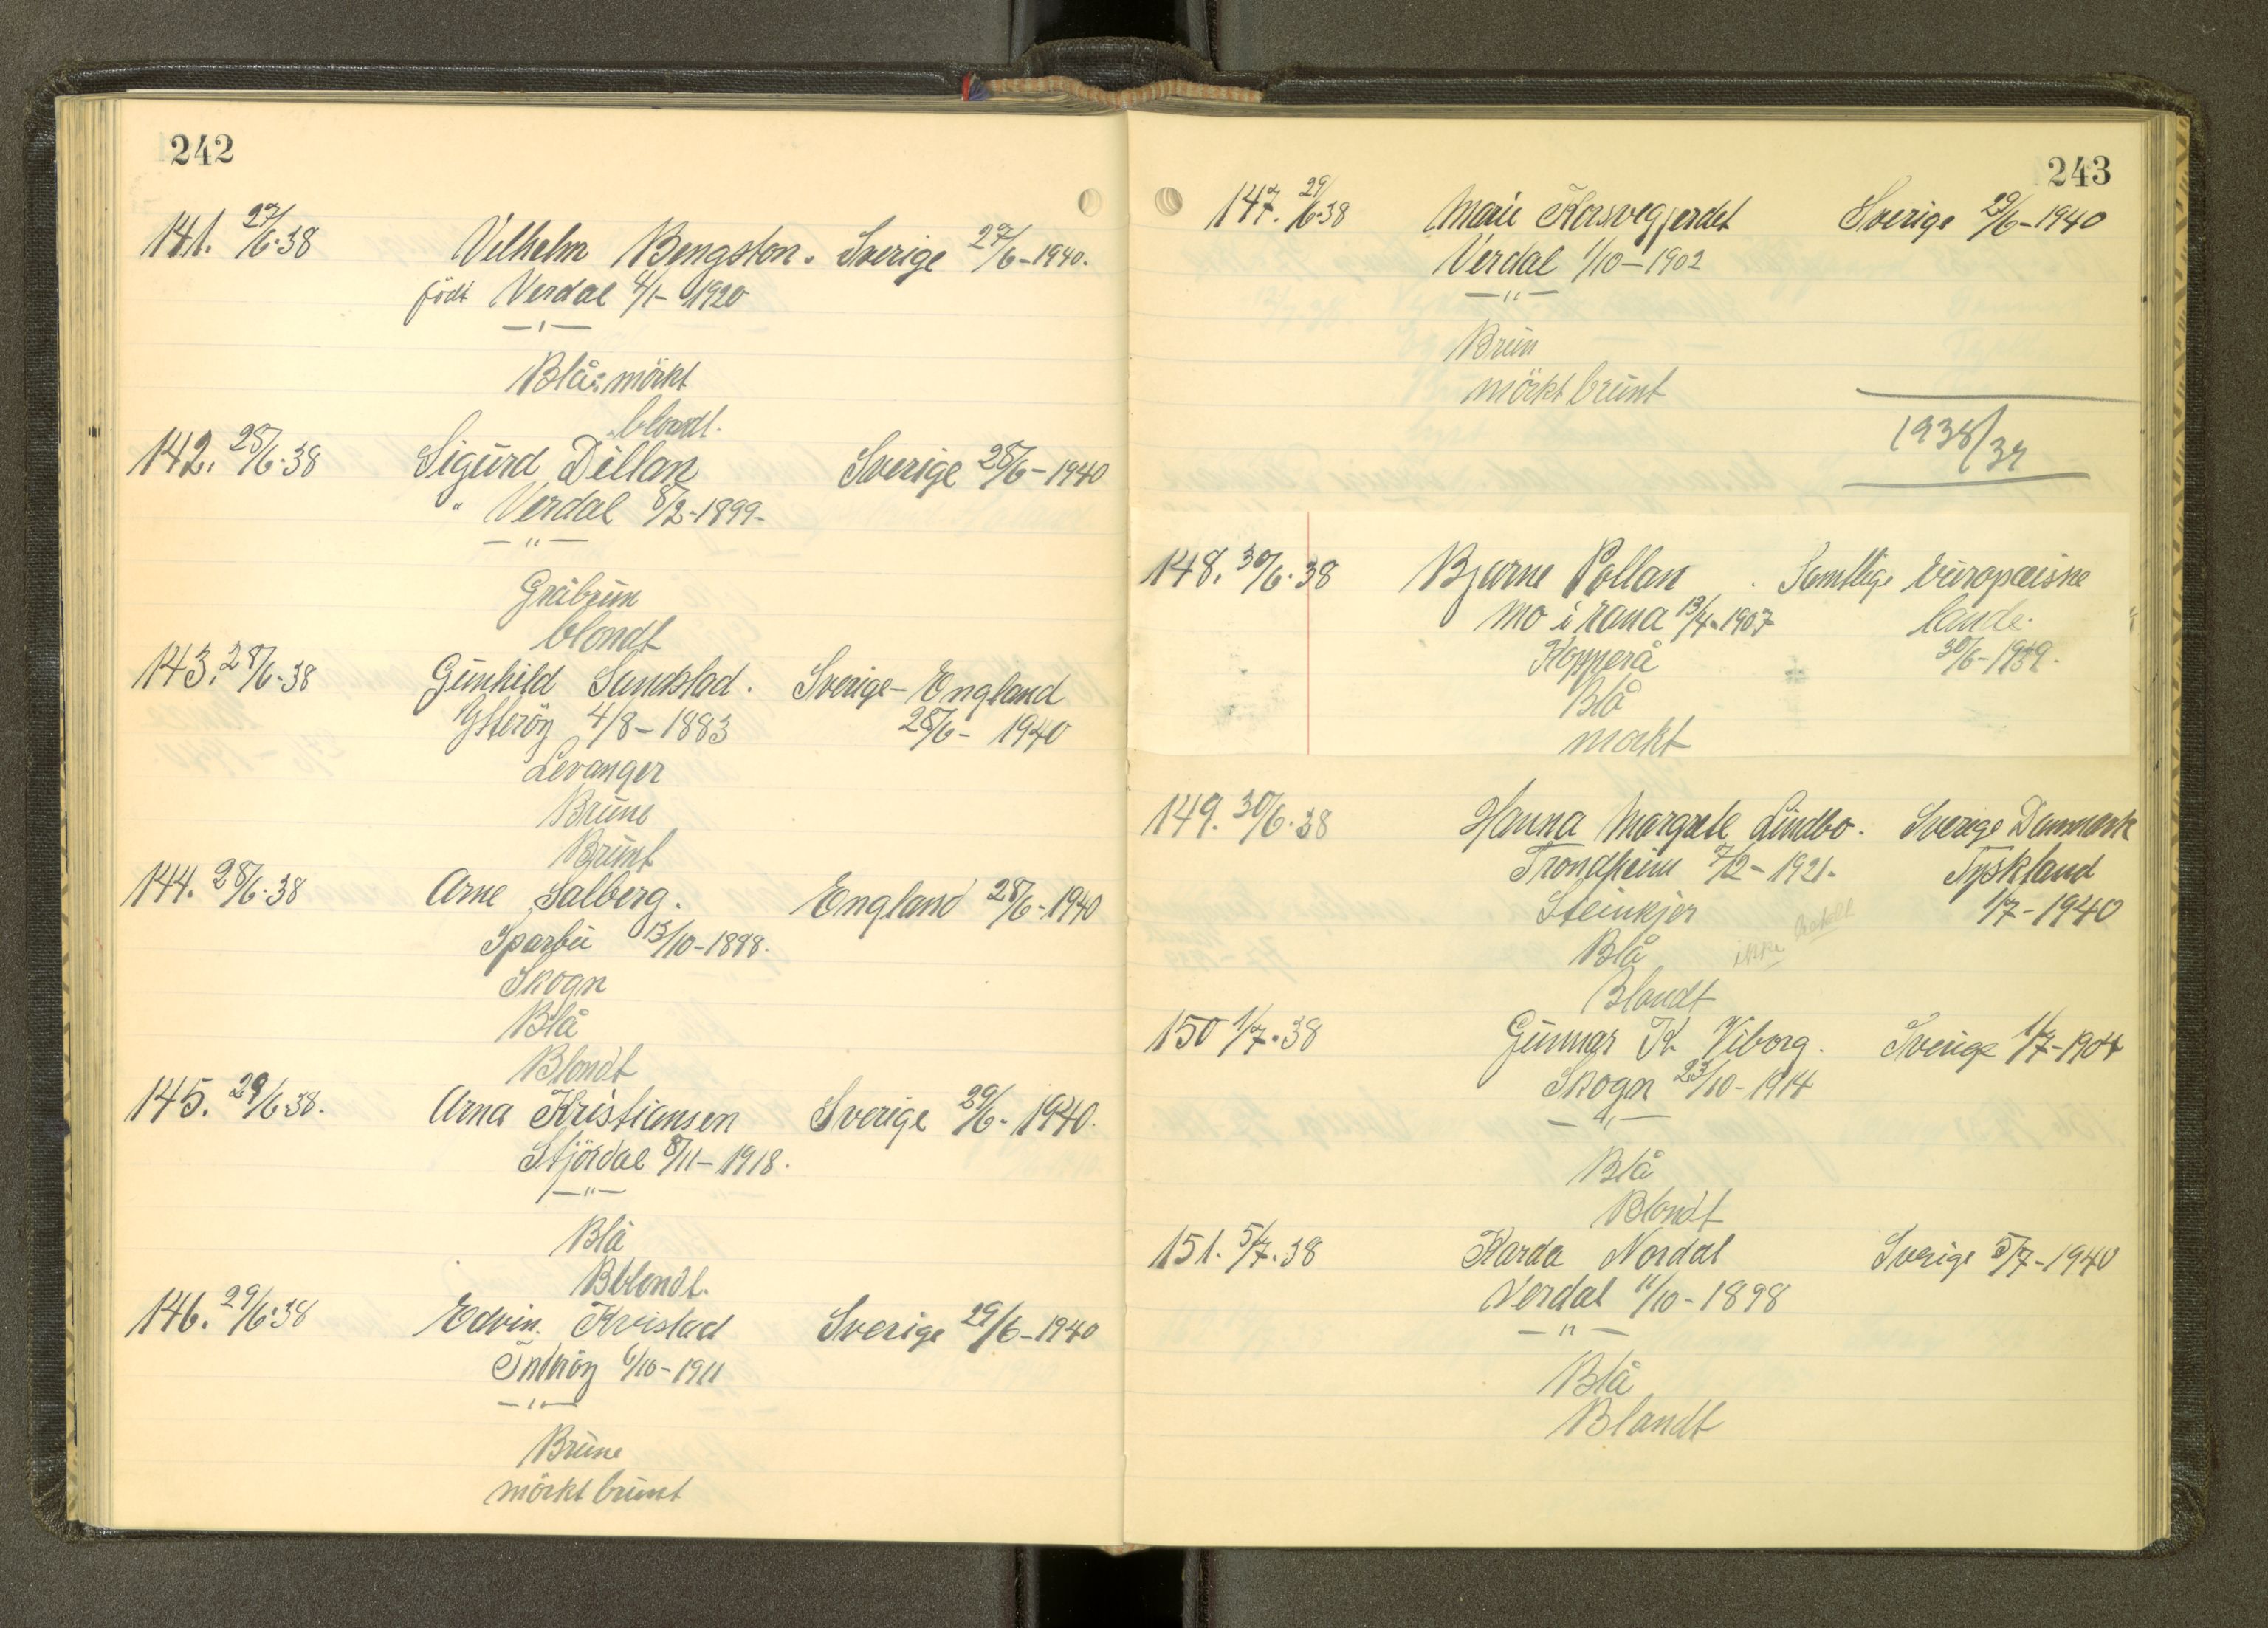 242
141. 27/6·38 Vilhelm Bengston. Sverige 27/6-1940.
födt Verdal 4/1-1920
— " —
Blå: mörkt
blondt.
142. 28/6·38 Sigurd Dillan Sverige 28/6-1940
" Verdal 8/2-1899-
— " —
Gråbrun
blondt
143. 28/6·38 Gunhild Sundslad. Sverige-England
Ytteröy 4/8-1883 28/6- 1940
Levanger
Brune
Brunt
144. 28/6·38 Arne Salberg. England 28/6-1940
Sparbu 13/10-1898.
Skogn
Blå
Blondt
145. 29/6 38. Arna Kristiansen Sverige 29/6-1940.
Stjördal 8/11-1918.
— " —
Blå
Bblondt.
146. 29/6·38 Edvin Kvistad Sverige 29/6-1940
Inderöy 6/10-1911
— " —
Brune
mörkt brunt
243
147. 29/6·38 Marie Korsveggjerdet Sverige 29/6-1940
Verdal 1/10-1902
— " —
Brun
mörkt brunt
1938/39
148. 30/6·38 Bjarne Pollan . Samtlige europæiske
Mo i rana 13/4-1907 lande.
Kopperå 30/6-1939.
Blå
mørkt
149. 30/6·38 Hanna Margrete Lindbo. Sverige Danmark
Trondheim 7/2-1921. Tyskland
Steinkjer 1/7-1940
Blå ikke
Blondt
150 1/7·38 Gunnar K. Viborg. Sverige 1/7-1904
Skogn 23/10-1914
— " —
Blå
Blondt
151. 5/7·38 Karda Nordal Sverige 5/7-1940
Verdal 11/10-1898
— " —
Blå
Blandt